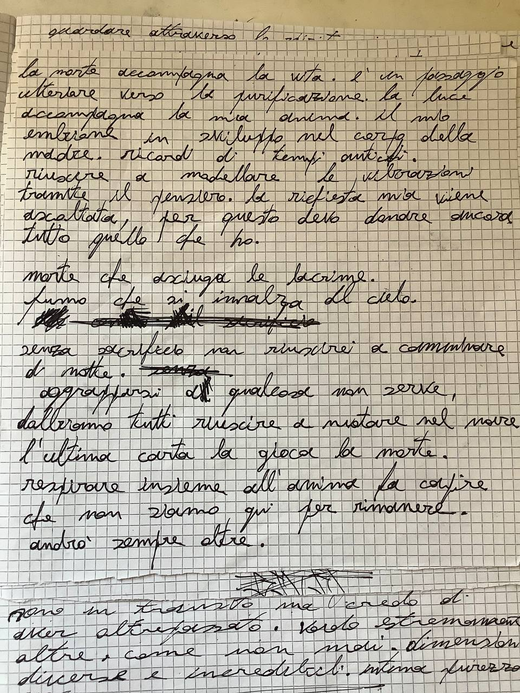 guardare attraverso
la morte accompagna la vita. è un passaggio
ulteriore verso la purificazione. la luce
accompagna la mia anima. il mio
embrione in sviluppo nel corpo della
madre. ricordi di tempi antichi.
riuscire a modellare le vibrazioni
tramite il pensiero. la richiesta mia viene
ascoltata, per questo devo dandre ancora
tutto quello che ho.
morte che asciuga le lacrime.
fumo che si innalza al cielo.
senza sacrificio non riuscirei a camminare
di notte.
aggrapparsi a qualcosa non serve,
dobbiamo tutti riuscire a nuotare nel mare
l'ultima carta la gioca la morte.
respirare insieme all'anima fa capire
che non siamo qui per rimanere.
andrò sempre oltre.
sono in transito ma credo di
aver oltrepassato. Vado estremamente
oltre, come non mai. dimensioni
diverse e incredibili. intima purezza